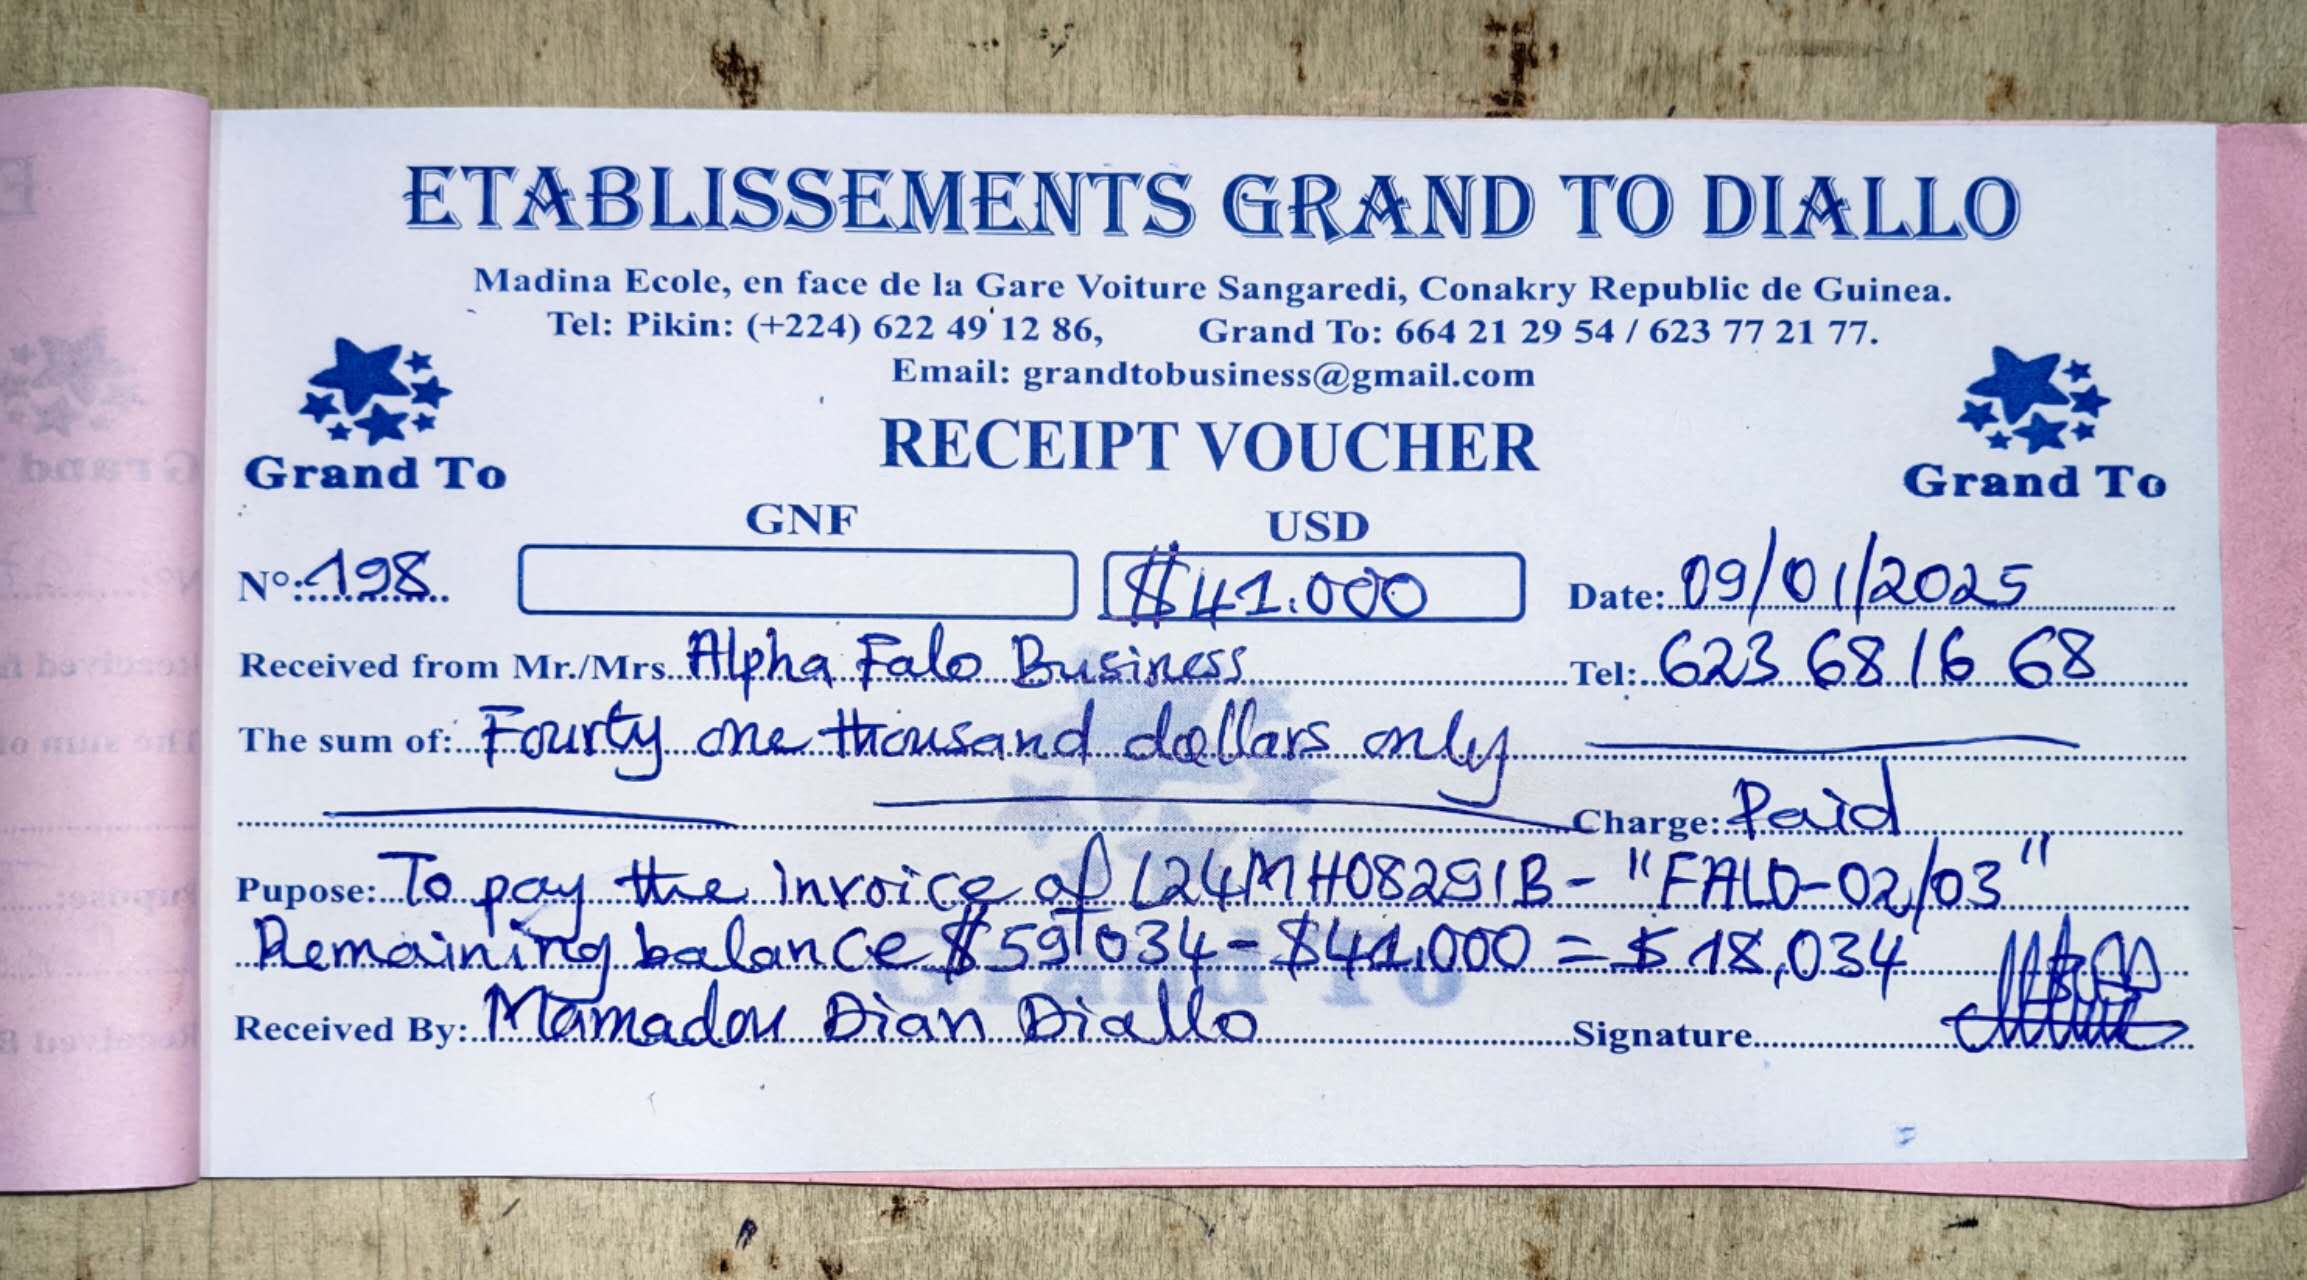 ETABLISSEMENTS GRAND TO DIALLO
Madina Ecole, en face de la Gare Voiture Sangaredi, Conakry Republic de Guinea.
Tel: Pikin: (+224) 622 49 12 86, Grand To: 664 21 29 54 / 623 77 21 77.
Email: grandtobusiness@gmail.com
Grand To
RECEIPT VOUCHER
Grand To
GNF USD
N°: 198 $41.000 Date: 09/01/2025
Received from Mr./Mrs. Alpha Falo Business Tel: 623 68 16 68
The sum of: Fourty one thousand dollars only
Charge: Paid
Pupose: To pay the invoice of L24MH08291B - "FALO-02/03"
Remaining balance $59,034 - $41,000 = $18,034
Received By: Mamadou Dian Diallo Signature
Grand To